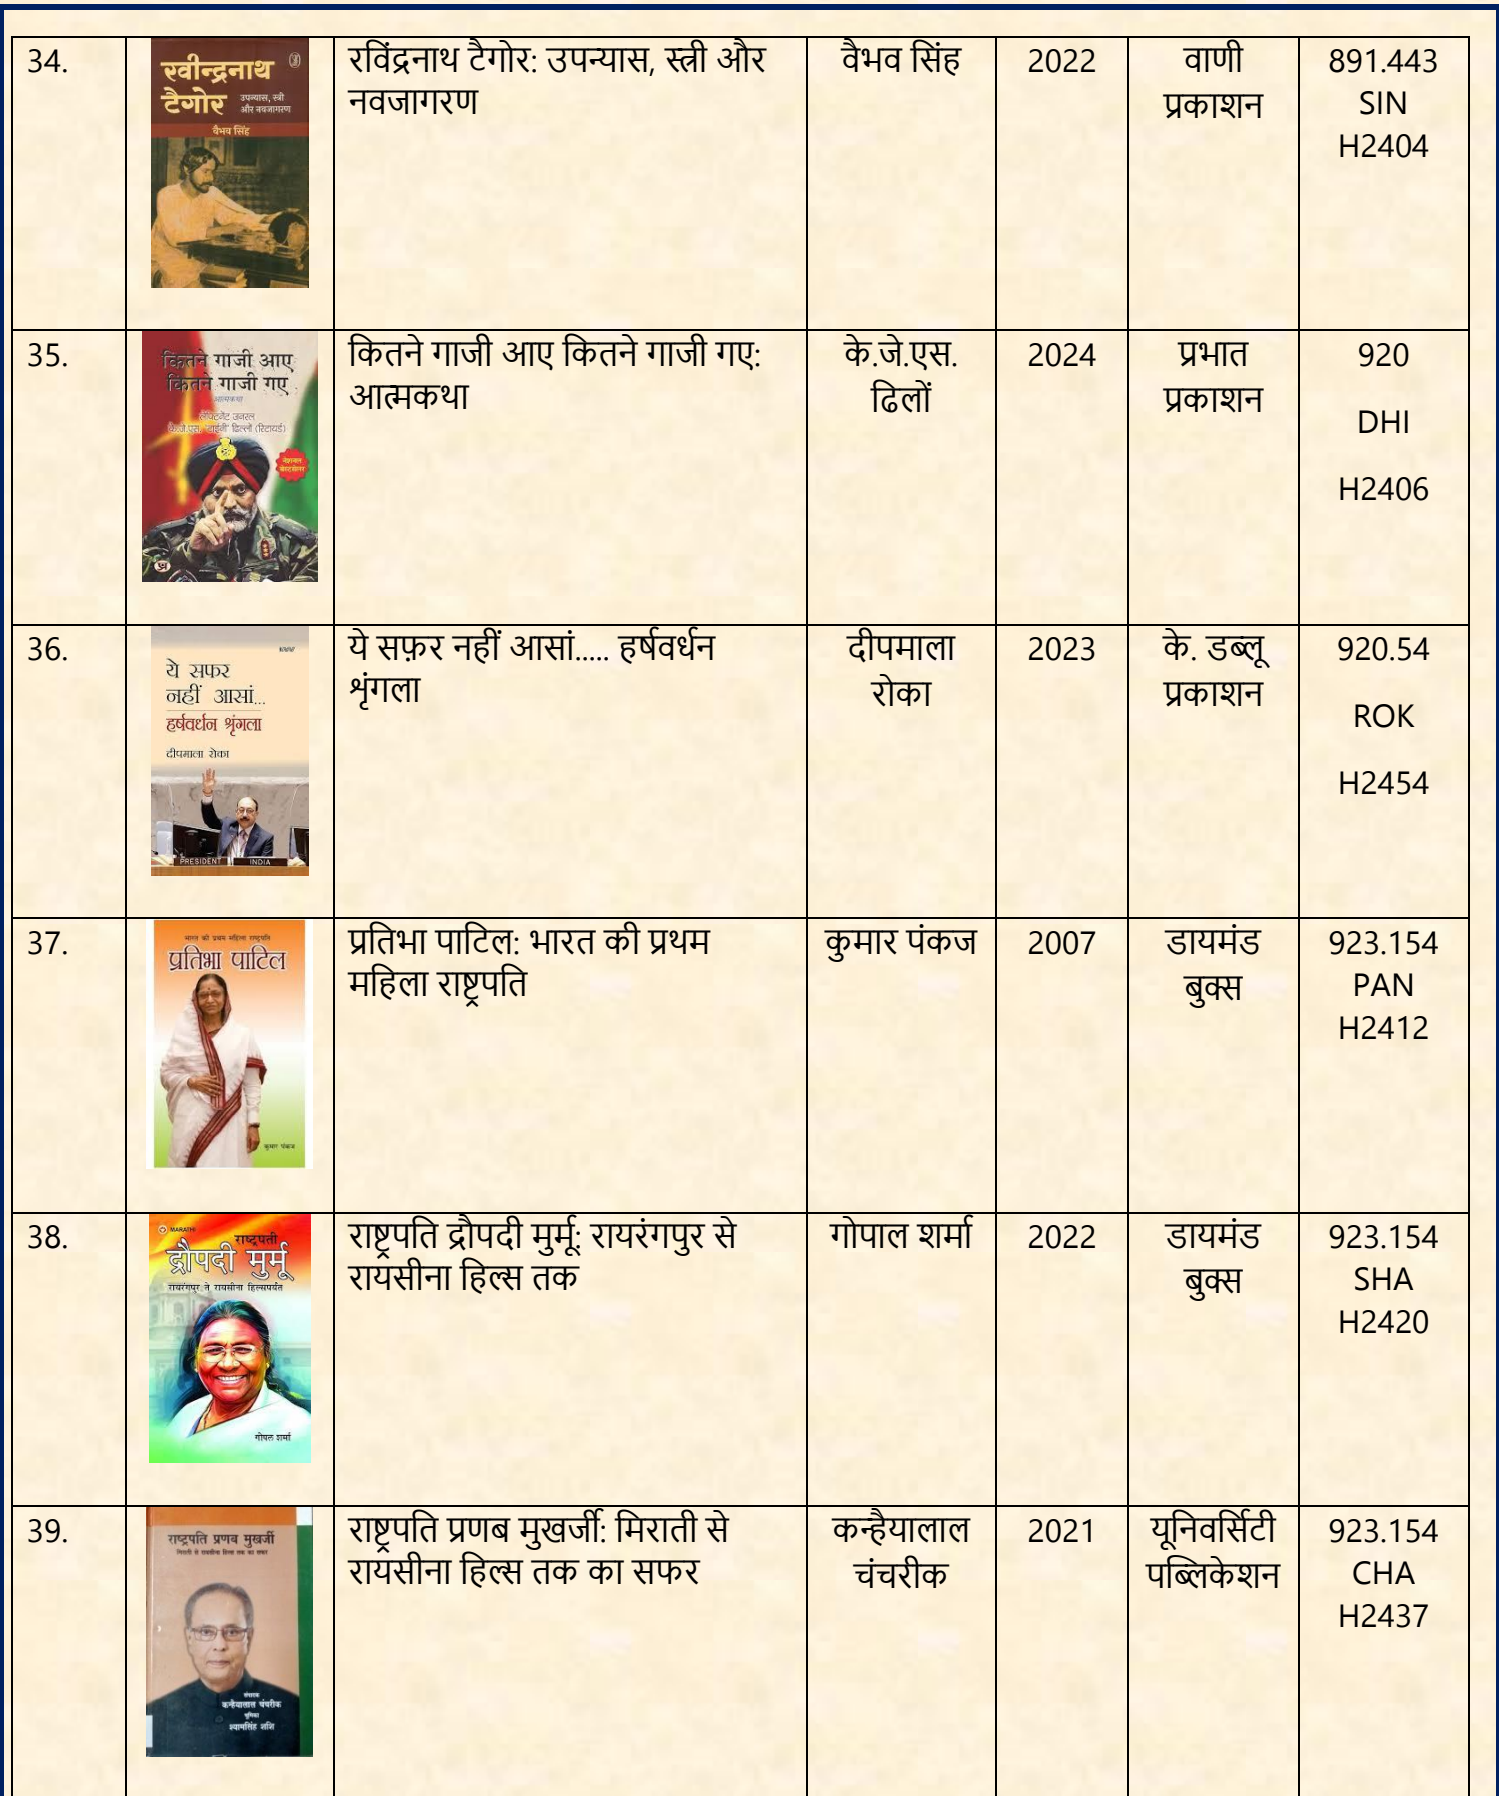 34.
रवीन्द्रनाथ
टैगोर
उपन्यास, स्त्री
और नवजागरण
वैभव सिंह
रविंद्रनाथ टैगोर: उपन्यास, स्त्री और
नवजागरण
वैभव सिंह
2022
वाणी
प्रकाशन
891.443
SIN
H2404
35.
कितने गाजी आए
कितने गाजी गए
आत्मकथा
लेफ्टिनेंट जनरल
के.जे.एस. 'टाईनी' ढिल्लों (रिटायर्ड)
नेशनल
बेस्टसेलर
प्र
कितने गाजी आए कितने गाजी गए:
आत्मकथा
के.जे.एस.
ढिलों
2024
प्रभात
प्रकाशन
920
DHI
H2406
36.
ये सफर
नहीं आसां...
हर्षवर्धन श्रृंगला
दीपमाला रोका
PRESIDENT
INDIA
ये सफ़र नहीं आसां..... हर्षवर्धन
शृंगला
दीपमाला
रोका
2023
के. डब्लू
प्रकाशन
920.54
ROK
H2454
37.
भारत की प्रथम महिला राष्ट्रपति
प्रतिभा पाटिल
कुमार पंकज
प्रतिभा पाटिल: भारत की प्रथम
महिला राष्ट्रपति
कुमार पंकज
2007
डायमंड
बुक्स
923.154
PAN
H2412
38.
MARATHI
राष्ट्रपती
द्रौपदी मुर्मू
रायरंगपुर ते रायसीना हिल्सपर्यंत
गोपाल शर्मा
राष्ट्रपति द्रौपदी मुर्मू: रायरंगपुर से
रायसीना हिल्स तक
गोपाल शर्मा
2022
डायमंड
बुक्स
923.154
SHA
H2420
39.
राष्ट्रपति प्रणब मुखर्जी
मिराती से रायसीना हिल्स तक का सफर
संपादक
कन्हैयालाल चंचरीक
भूमिका
श्यामसिंह शशि
राष्ट्रपति प्रणब मुखर्जी: मिराती से
रायसीना हिल्स तक का सफर
कन्हैयालाल
चंचरीक
2021
यूनिवर्सिटी
पब्लिकेशन
923.154
CHA
H2437